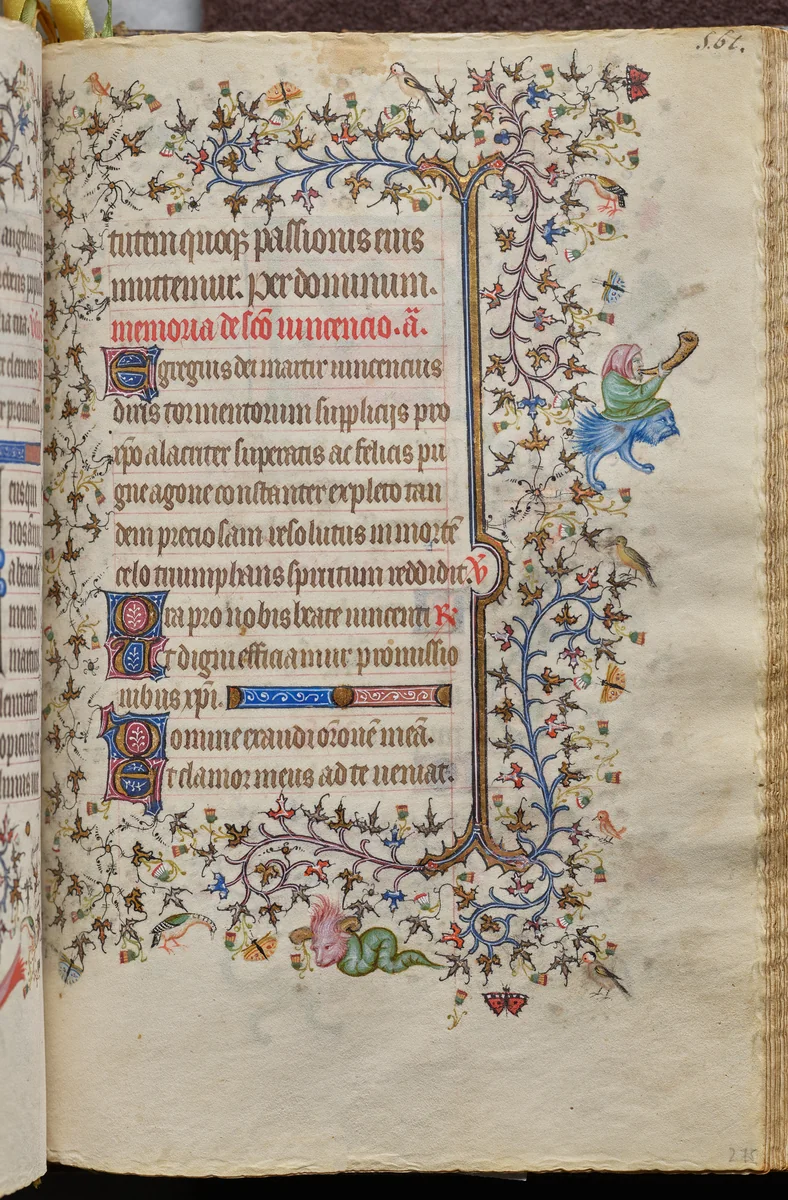 561.
tutem quoq; passionis eius
mittemur. Per dominum.
memoria de sco vincencio. a̅.
Egregius dei martir vincencius
diris tormentorum supplicijs pro
xpo alacriter superatis ac felicis pu
gne agone constanter expleto tan
dem preciosam resolutus in morte̅
celo triumphans spiritum reddidit. V
Ora pro nobis beate vincenti R
Ut digni efficiamur promissio
nibus xpi.
Domine exaudi or̅one̅ mea̅.
Et clamor meus ad te veniat.
275